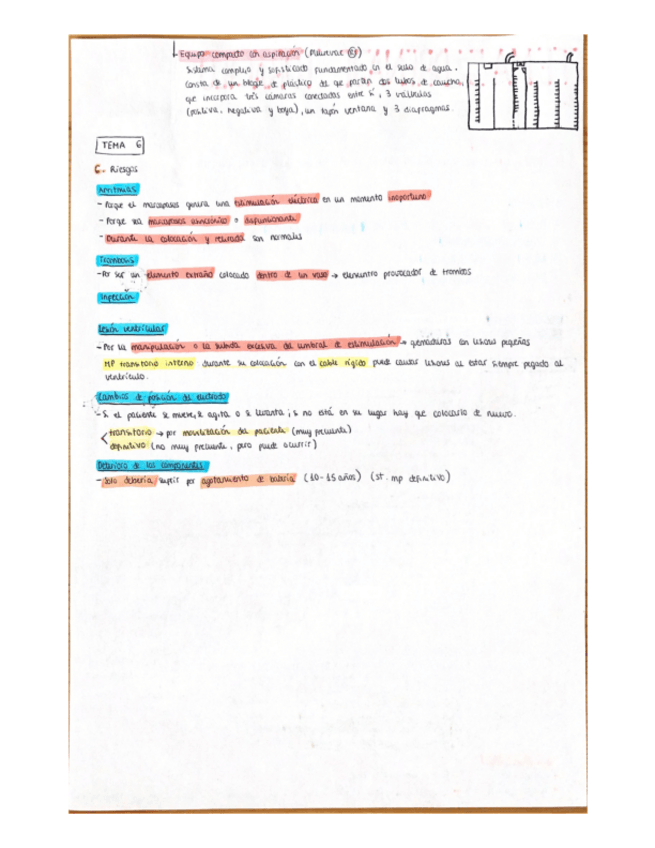 Equipo compacto con aspiración (Pleurevac ®)
Sistema complejo y sofisticado fundamentado en el sello de agua.
Consta de un bloque de plástico del que parten dos tubos de caucho,
que incorpora tres cámaras conectadas entre sí, 3 válvulas
(positiva, negativa y boya), un tapón ventana y 3 diafragmas.
TEMA 6
C. Riesgos
Arritmias
- Porque el marcapasos genera una estimulación eléctrica en un momento inoportuno
- Porque sea marcapasos asincrónico o disfuncionante
- Durante la colocación y retirada son normales
Trombosis
- Por ser un elemento extraño colocado dentro de un vaso → elemento provocador de trombos
Infección
Lesión ventricular
- Por la manipulación o la subida excesiva del umbral de estimulación → quemaduras con lesiones pequeñas
MP transitorio interno durante su colocación con el cable rígido puede causar lesiones al estar siempre pegado al
ventrículo.
Cambios de posición del electrodo
- Si el paciente se mueve, se agita o se levanta; si no está en su lugar hay que colocarlo de nuevo.
transitorio → por movilización del paciente (muy frecuente)
definitivo (no muy frecuente, pero puede ocurrir)
Deterioro de los componentes
- Solo debería surgir por agotamiento de batería (10-15 años) (st. mp definitivo)